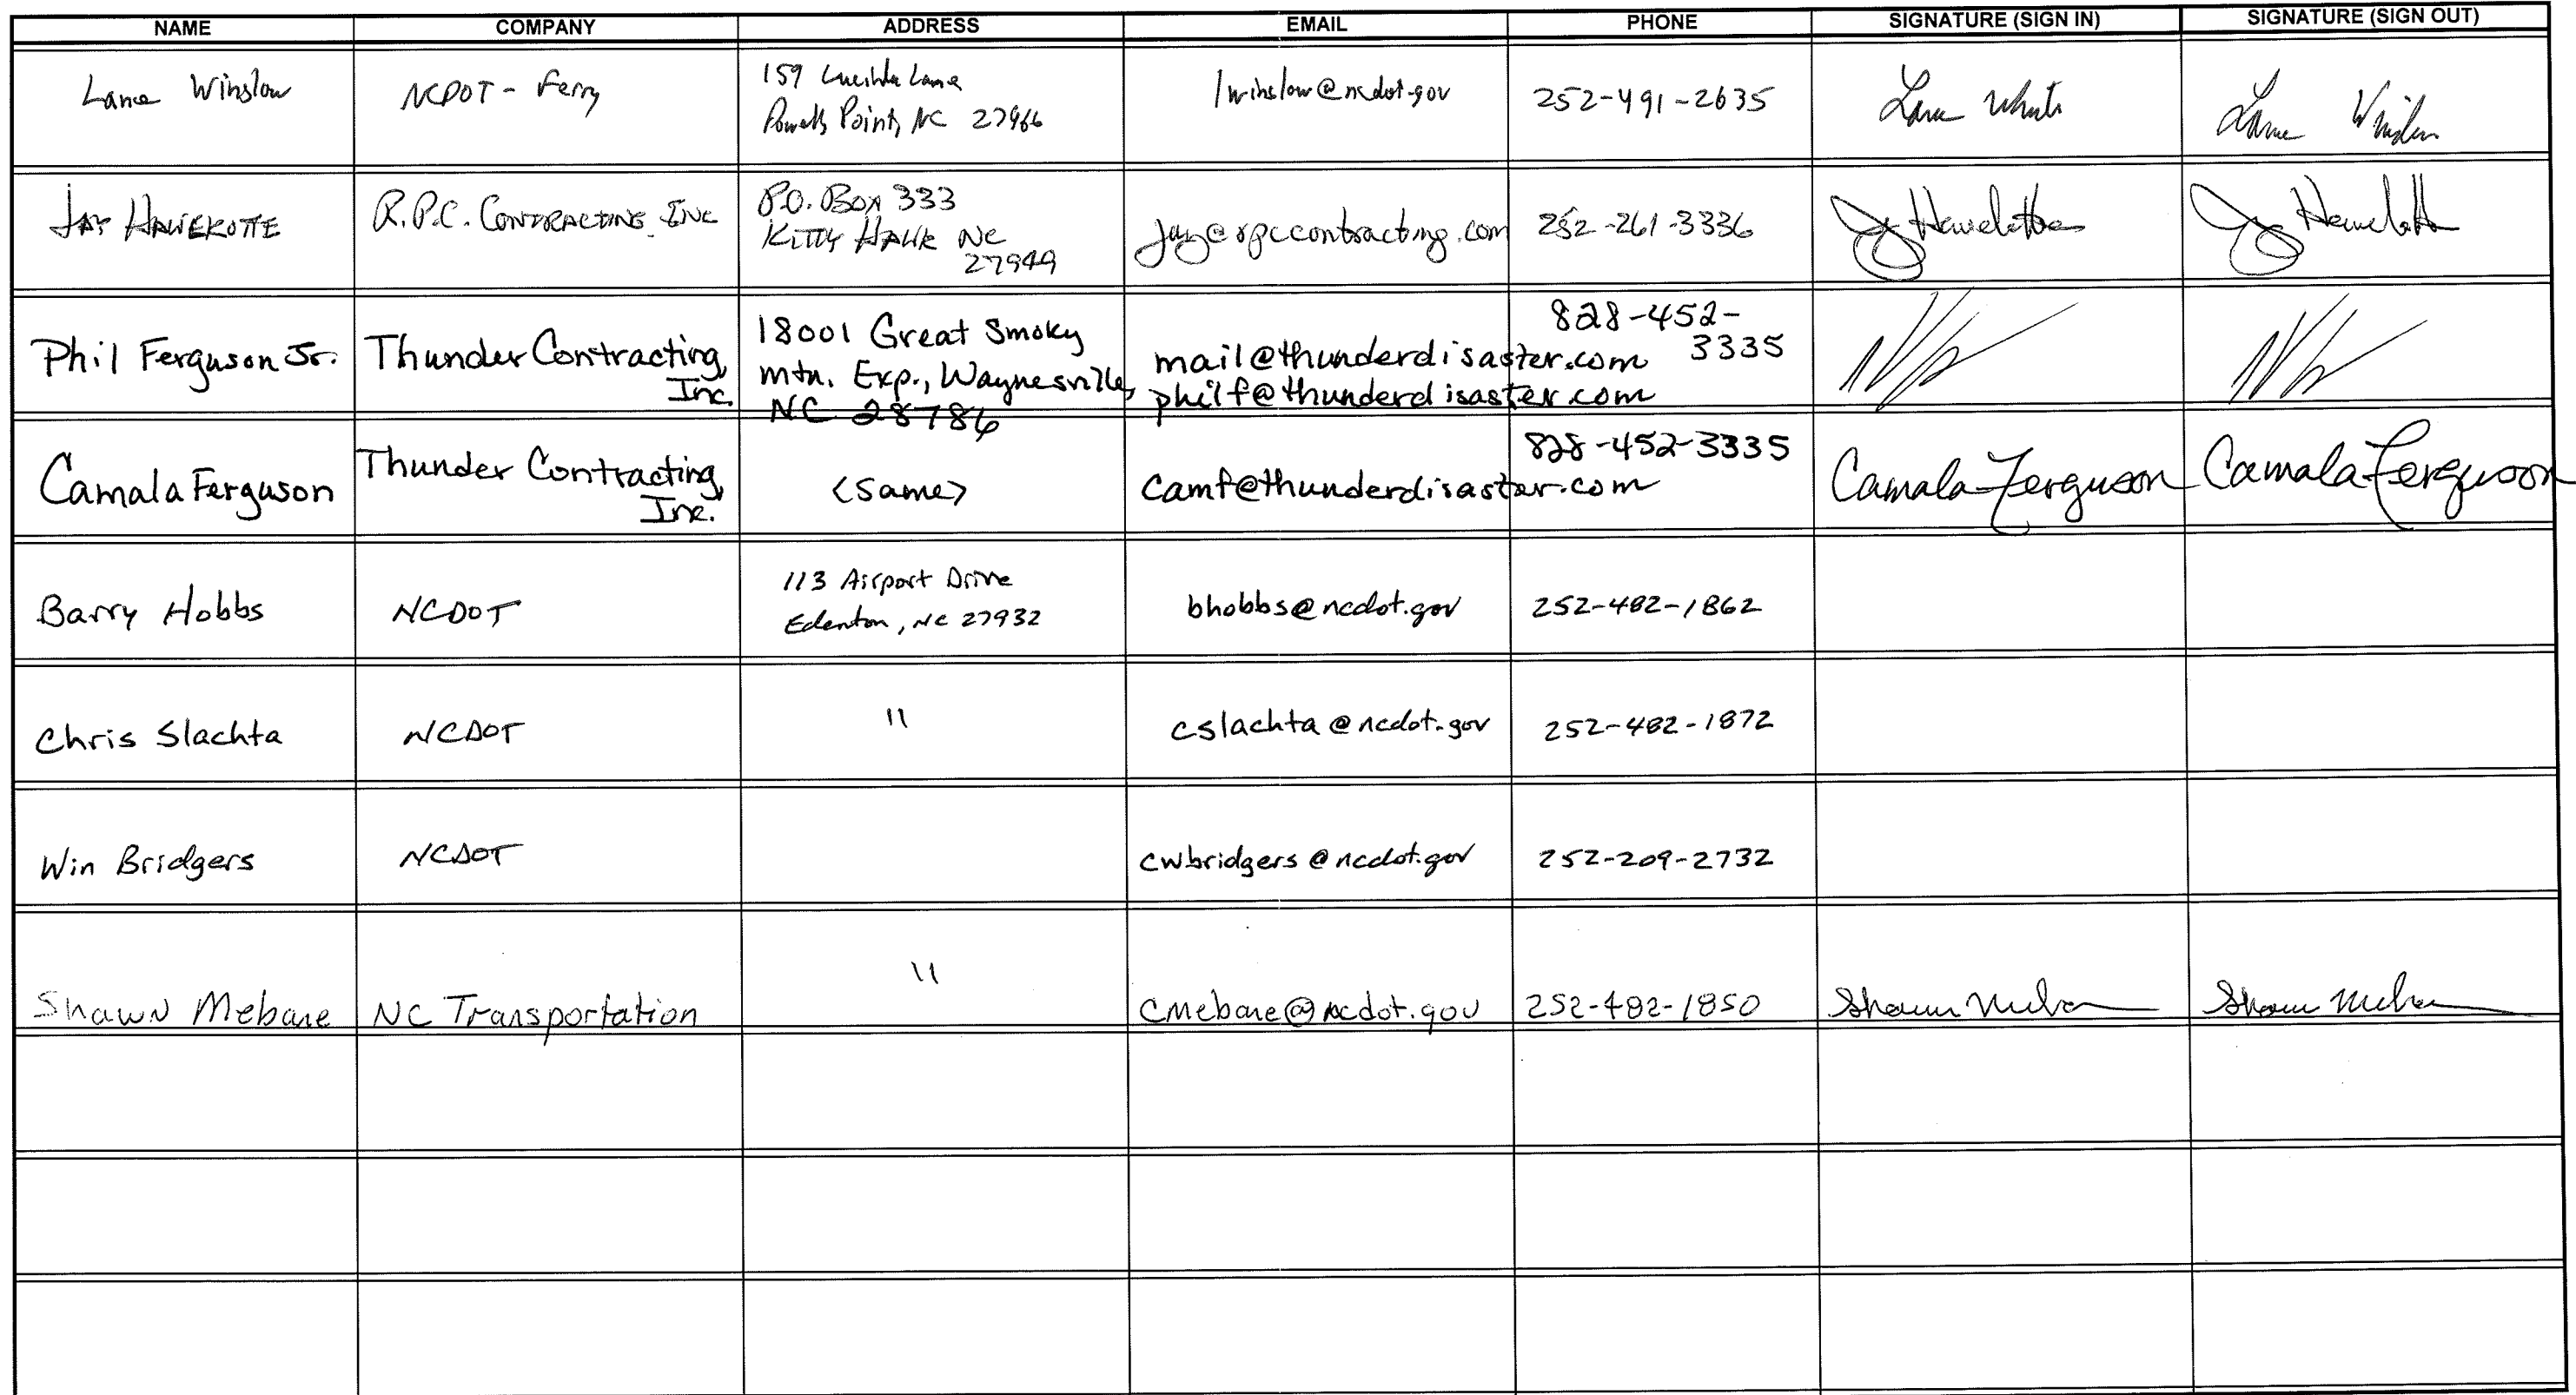 NAME COMPANY ADDRESS EMAIL PHONE SIGNATURE (SIGN IN) SIGNATURE (SIGN OUT)
Lance Winslow
NCDOT - Ferry
159 Lane
Powells Point, NC 27966
lwinslow@ncdot.gov
252-491-2635
JAY HAWEKOTTE
R.P.C. CONTRACTING, INC
P.O. BOX 333
KITTY HAWK NC
27949
jay@rpccontracting.com
252-261-3336
Phil Ferguson Jr.
Thunder Contracting,
Inc.
18001 Great Smoky
mtn. Exp., Waynesville,
NC 28786
mail@thunderdisaster.com
philf@thunderdisaster.com
828-452-
3335
Camala Ferguson
Thunder Contracting,
Inc.
<same>
camf@thunderdisaster.com
828-452-3335
Camala Ferguson
Camala Ferguson
Barry Hobbs
NCDOT
113 Airport Drive
Edenton, NC 27932
bhobbs@ncdot.gov
252-482-1862
Chris Slachta
NCDOT
"
cslachta@ncdot.gov
252-482-1872
Win Bridgers
NCDOT
cwbridgers@ncdot.gov
252-209-2732
Shawn Mebane
NC Transportation
"
cmebane@ncdot.gov
252-482-1850